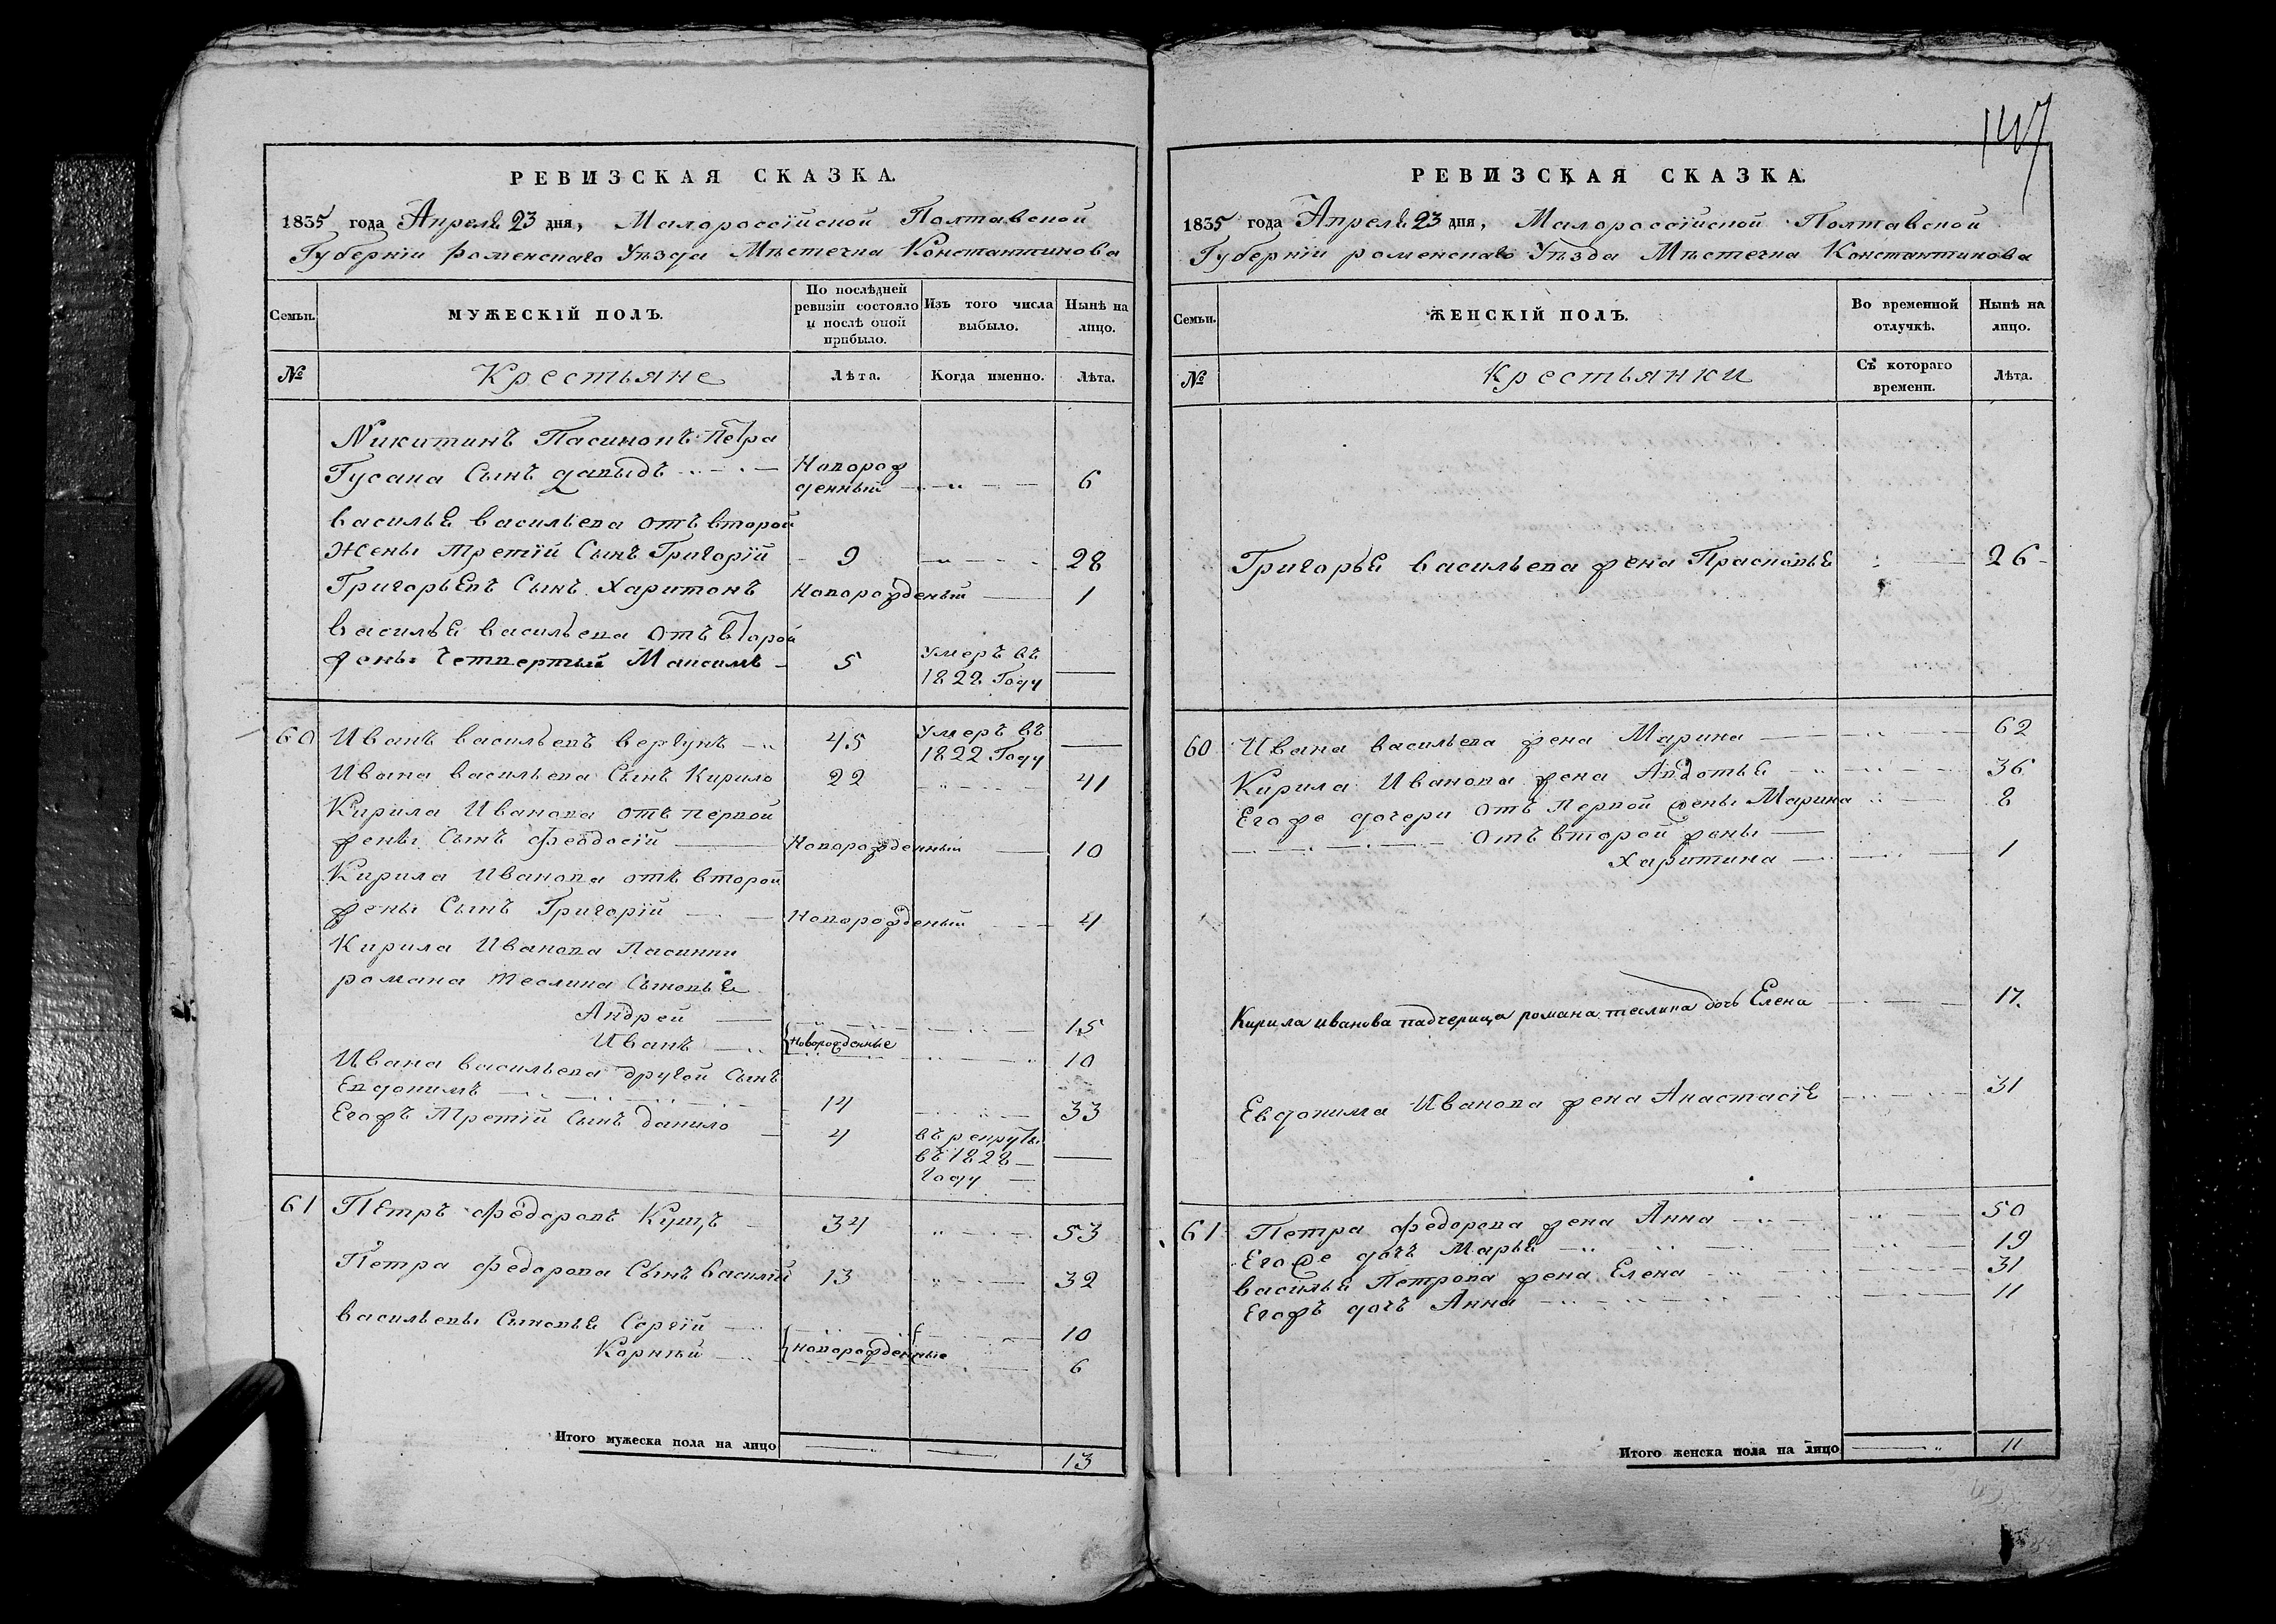 РЕВИЗСКАЯ СКАЗКА.
1835 года Апреля 23 дня, Малороссійской Полтавской
Губерніи роменскаго Уѣзда Мѣстечка Константинова
Семьи.
МУЖЕСКІЙ ПОЛЪ.
По послѣдней ревизіи состояло и послѣ оной прибыло.
Изъ того числа выбыло.
Нынѣ на лицо.
№
Крестьяне
Лѣта.
Когда именно.
Лѣта.
Никитинъ Пасинокъ Петра
Гусака Сынъ давыдъ Новорож
денный 6
василья васильева отъ второй
Жены третій Сынъ Григорій 9 28
Григорьевъ Сынъ Харитонъ Новорожденый 1
василья васильева отъ второй
жены Четвертый Максимъ 5 Умеръ въ
1822 Году
60 Иванъ васильевъ вергунъ 45 Умеръ въ
1822 Году
Ивана васильева Сынъ Кирило 22 41
Кирила Иванова отъ первой
жены Сынъ Феодосій Новорожденный 10
Кирила Иванова отъ второй
жены Сынъ Григорій Новорожденый 4
Кирила Иванова Пасинки
романа теслика Сыновья
Андрей 15
Иванъ Новорожденные 10
Ивана васильева другой Сынъ
Евдокимъ 14 33
Егожъ третій Сынъ данило 4 въ рекруты
въ 1828
Году
61 Петръ Федоровъ Куцъ 34 53
Петра Федорова Сынъ василій 13 32
васильевы Сыновья Сергій 10
Корнѣй новорожденные 6
Итого мужеска пола на лицо 13
147
РЕВИЗСКАЯ СКАЗКА.
1835 года Апреля 23 дня, Малороссійской Полтавской
Губерніи роменскаго Уѣзда Мѣстечка Константинова
Семьи.
ЖЕНСКІЙ ПОЛЪ.
Во временной отлучкѣ.
Нынѣ на лицо.
№
Крестьянки
Съ котораго времени.
Лѣта.
Григорья васильева жена Прасковья 26
60 Ивана васильева жена Марина 62
Кирила Иванова жена Авдотья 36
Егоже дочери отъ первой жены Марина 8
отъ второй жены
Харитина 1
Кирила иванова падчерица романа теслика дочь Елена 17.
Евдокима Иванова жена Анастасія 31
61 Петра Федорова жена Анна 50
Егоже дочъ Марья 19
василья Петрова жена Елена 31
Егожъ дочъ Анна 11
Итого женска пола на лицо 11